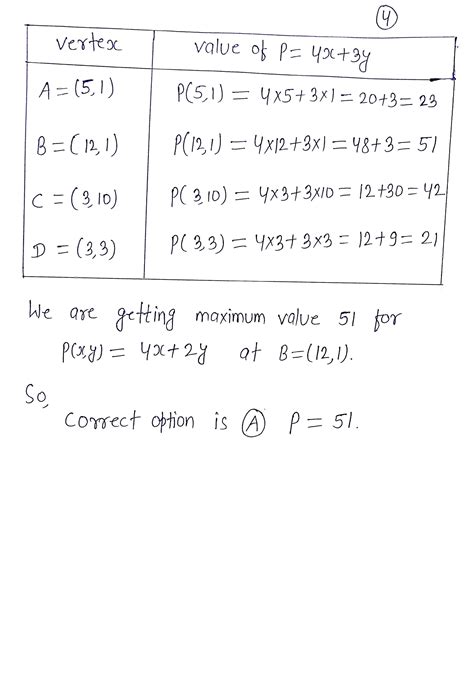 4
vertex value of P= 4x+3y
A=(5,1) P(5,1) = 4×5+3×1=20+3= 23
B=(12,1) P(12,1) = 4×12+3×1=48+3= 51
C =(3,10) P(3,10) = 4×3+3×10=12+30=42
D =(3,3) P(3,3) = 4×3+3×3=12+9=21
We are getting maximum value 51 for
P(x,y)= 4x+2y at B=(12,1).
So,
Correct option is A P=51.